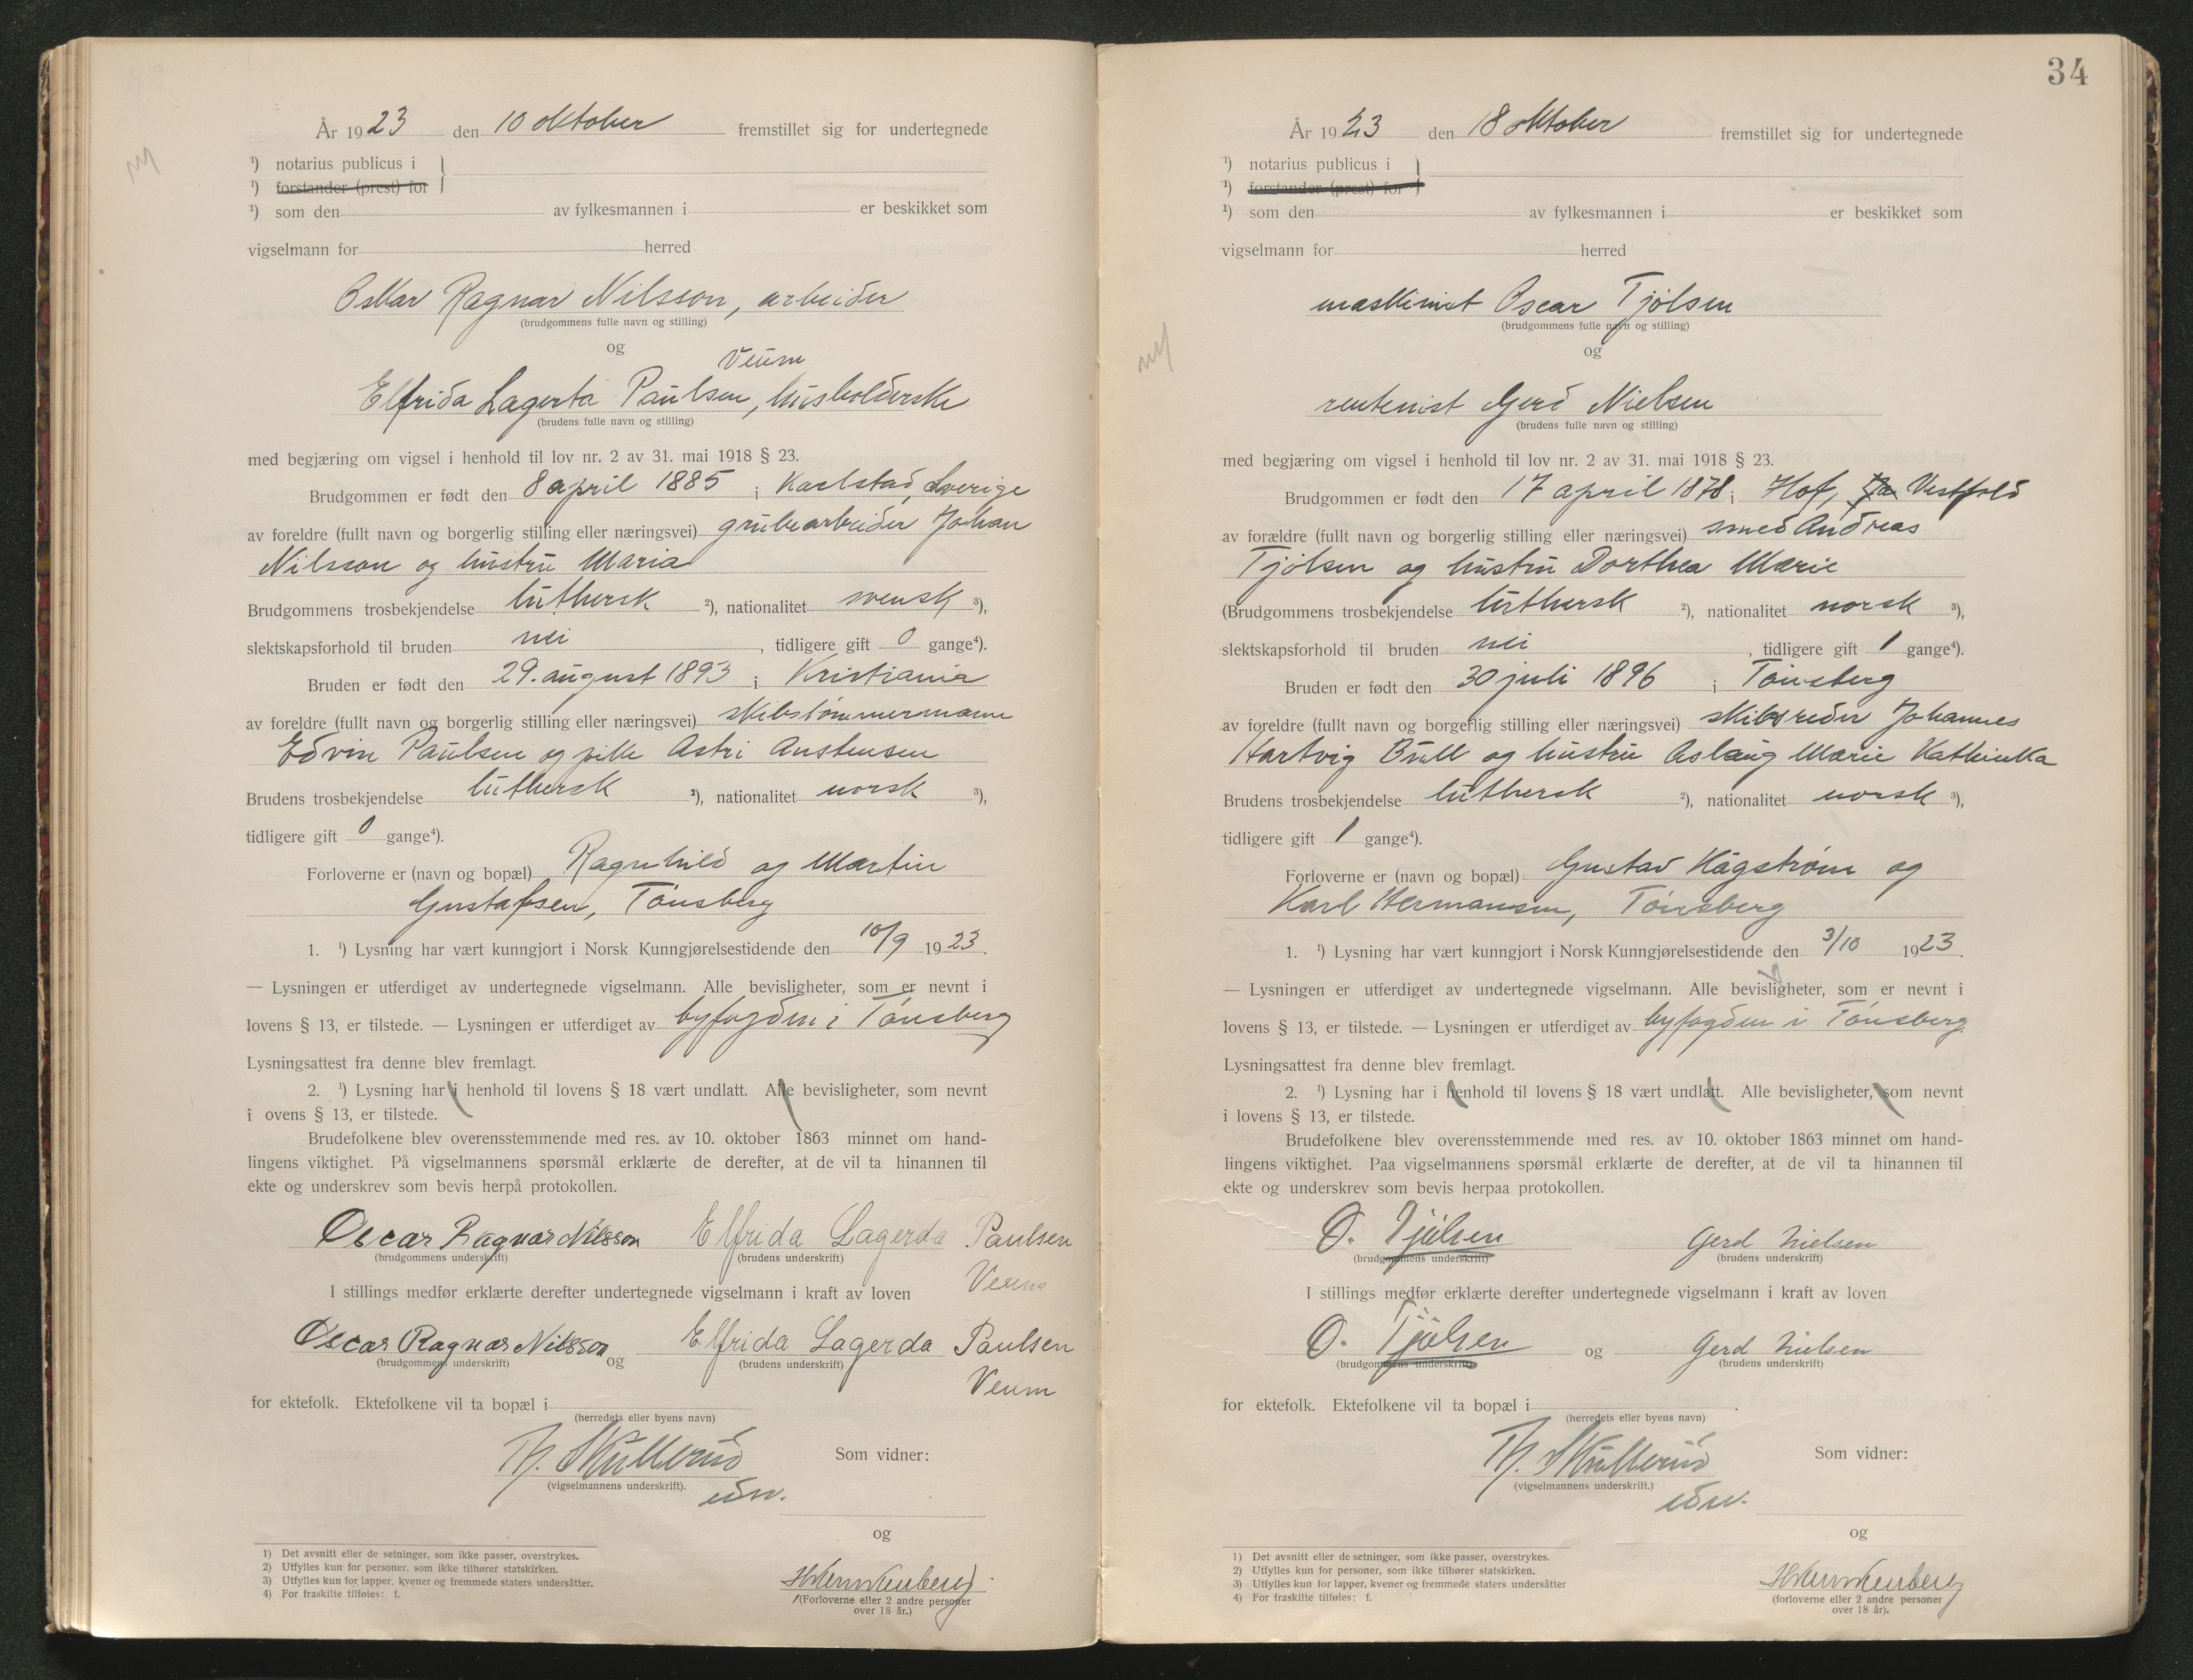 År 1923 den 10 oktober fremstillet sig for undertegnede
¹) notarius publicus i
¹) forstander (prest) for
¹) som den av fylkesmannen i er beskikket som
vigselmann for herred
Oskar Ragnar Nilsson, arbeider
(brudgommens fulle navn og stilling)
og
Veum
Elfrida Lagerta Paulsen, husholderske
(brudens fulle navn og stilling)
med begjæring om vigsel i henhold til lov nr. 2 av 31. mai 1918 § 23.
Brudgommen er født den 8 april 1885 i Karlstad, Sverige
av foreldre (fullt navn og borgerlig stilling eller næringsvei) grubearbeider Johan
Nilsson og hustru Maria
Brudgommens trosbekjendelse luthersk ²), nationalitet svensk ³),
slektskapsforhold til bruden nei, tidligere gift 0 gange⁴).
Bruden er født den 29. august 1893 i Kristiania
av foreldre (fullt navn og borgerlig stilling eller næringsvei) skibstømmermann
Edvin Paulsen og pike Astri Anstensen
Brudens trosbekjendelse luthersk ²), nationalitet norsk ³),
tidligere gift 0 gange⁴).
Forloverne er (navn og bopæl) Ragnhild og Martin
Gustafsen, Tønsberg
1. ¹) Lysning har vært kunngjort i Norsk Kunngjørelsestidende den 10/9 1923.
— Lysningen er utferdiget av undertegnede vigselmann. Alle bevisligheter, som er nevnt i
lovens § 13, er tilstede. — Lysningen er utferdiget av byfogden i Tønsberg
Lysningsattest fra denne blev fremlagt.
2. ¹) Lysning har i henhold til lovens § 18 vært undlatt. Alle bevisligheter, som nevnt
i ovens § 13, er tilstede.
Brudefolkene blev overensstemmende med res. av 10. oktober 1863 minnet om hand-
lingens viktighet. På vigselmannens spørsmål erklærte de derefter, at de vil ta hinannen til
ekte og underskrev som bevis herpå protokollen.
Oscar Ragnar Nilsson Elfrida Lagerda Paulsen
(brudgommens underskrift) (brudens underskrift)
Veum
I stillings medfør erklærte derefter undertegnede vigselmann i kraft av loven
Oscar Ragnar Nilsson og Elfrida Lagerda Paulsen
(brudgommens underskrift) (brudens underskrift)
Veum
for ektefolk. Ektefolkene vil ta bopæl i
(herredets eller byens navn)
Th. Skullerud Som vidner:
(vigselmannens underskrift).
edn.
og
(Forloverne eller 2 andre personer
over 18 år.)
1) Det avsnitt eller de setninger, som ikke passer, overstrykes.
2) Utfylles kun for personer, som ikke tilhører statskirken.
3) Utfylles kun for lapper, kvener og fremmede staters undersåtter.
4) For fraskilte tilføies: f.
34
År 1923 den 18 oktober fremstillet sig for undertegnede
¹) notarius publicus i
¹) forstander (prest) for
¹) som den av fylkesmannen i er beskikket som
vigselmann for herred
maskinist Oscar Tjølsen
(brudgommens fulle navn og stilling)
og
rentenist Gerd Nielsen
(brudens fulle navn og stilling)
med begjæring om vigsel i henhold til lov nr. 2 av 31. mai 1918 § 23.
Brudgommen er født den 17 april 1878 i Hof, Vestfold
av forældre (fullt navn og borgerlig stilling eller næringsvei) smed Andreas
Tjølsen og hustru Dorthea Marie
(Brudgommens trosbekjendelse luthersk ²), nationalitet norsk ³),
slektskapsforhold til bruden nei, tidligere gift 1 gange⁴).
Bruden er født den 30 juli 1896 i Tønsberg
av foreldre (fullt navn og borgerlig stilling eller næringsvei) skibsreder Johannes
Hartvig Bull og hustru Aslaug Marie Kathinka
Brudens trosbekjendelse luthersk ²), nationalitet norsk ³),
tidligere gift 1 gange⁴).
Forloverne er (navn og bopæl) Gustav Hägstrøm og
Karl Hermansen, Tønsberg
1. ¹) Lysning har vært kunngjort i Norsk Kunngjørelsestidende den 3/10 1923.
— Lysningen er utferdiget av undertegnede vigselmann. Alle bevisligheter, som er nevnt i
lovens § 13, er tilstede. — Lysningen er utferdiget av byfogden i Tønsberg.
Lysningsattest fra denne blev fremlagt.
2. ¹) Lysning har i henhold til lovens § 18 vært undlatt. Alle bevisligheter, som nevnt
i lovens § 13, er tilstede.
Brudefolkene blev overensstemmende med res. av 10. oktober 1863 minnet om hand-
lingens viktighet. Paa vigselmannens spørsmål erklærte de derefter, at de vil ta hinannen til
ekte og underskrev som bevis herpaa protokollen.
O. Tjølsen Gerd Nielsen
(brudgommens underskrift) (brudens underskrift)
I stillings medfør erklærte derefter undertegnede vigselmann i kraft av loven
O. Tjølsen og Gerd Nielsen
(brudgommens underskrift) (brudens underskrift)
for ektefolk. Ektefolkene vil ta bopæl i .
(herredets eller byens navn)
Th. Skullerud Som vidner:
(vigselmannens underskrift.)
edn.
og
(forloverne eller 2 andre personer
over 18 år).
1) Det avsnitt eller de setninger, som ikke passer, overstrykes.
2) Utfylles kun for personer, som ikke tilhører statskirken.
3) Utfylles kun for lapper, kvener og fremmede staters undersåtter
4) For fraskilte tilføies: f.